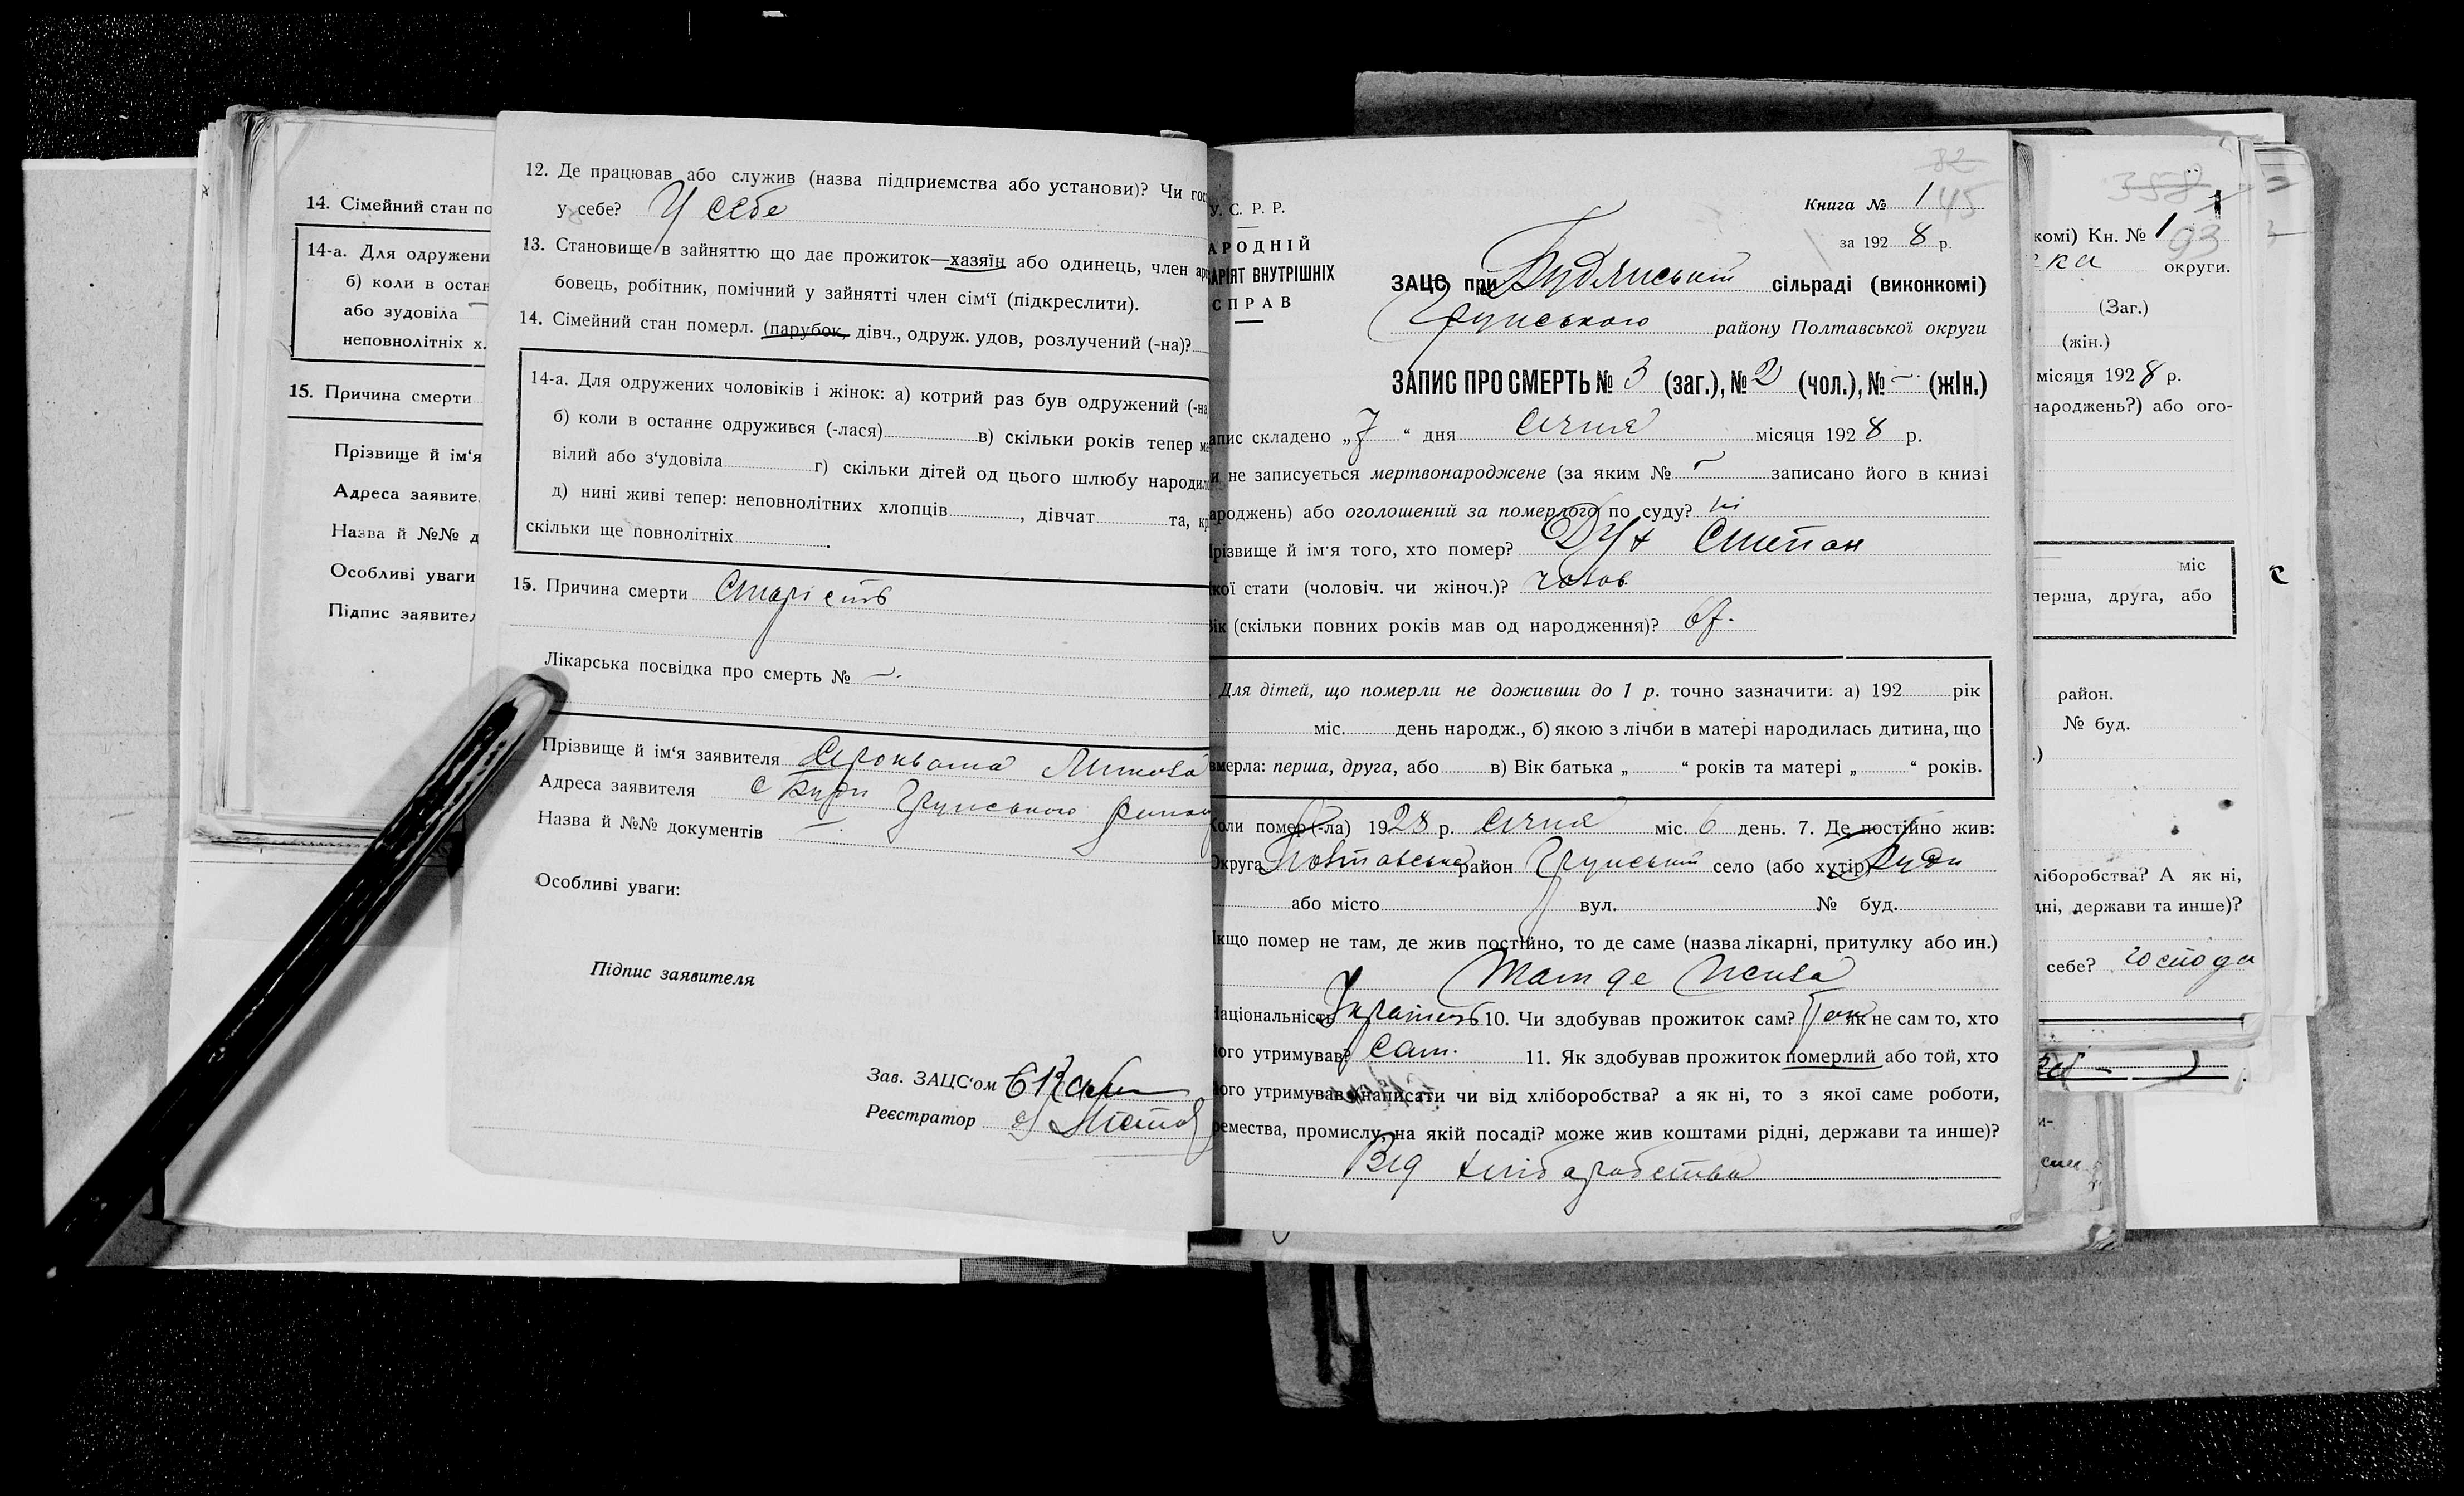 14. Сімейний стан по
14-а. Для одружени
б) коли в остан
або зудовіла
неповнолітніх х.
15. Причина смерти
Прізвище й ім‘я
Адреса заявите
Назва й №№ д
Особливі уваги
Підпис заявител
12. Де працював або служив (назва підприємства або установи)? Чи гос
у себе? У себе
13. Становище в зайняттю що дає прожиток—хазяїн або одинець, член арт
бовець, робітник, помічний у зайнятті член сім‘ї (підкреслити).
14. Сімейний стан померл. (парубок, дівч., одруж. удов, розлучений (-на)?
14-а. Для одружених чоловіків і жінок: а) котрий раз був одружений (-на
б) коли в останнє одружився (-лася) в) скільки років тепер ма
вілий або з‘удовіла г) скільки дітей од цього шлюбу народил
д) нині живі тепер: неповнолітних хлопців , дівчат та, кр
скільки ще повнолітніх .
15. Причина смерти Старість
Лікарська посвідка про смерть № —.
Прізвище й ім‘я заявителя
Адреса заявителя с Буди Грунського
Назва й №№ документів —.
Особливі уваги:
Підпис заявителя
Зав. ЗАЦС‘ом
Реєстратор
82
У. С. Р. Р.
Книга № 1 45
АРОДНІЙ
АРІЯТ ВНУТРІШНІХ
СПРАВ
за 192 8 р.
ЗАЦС при Будянській сільраді (виконкомі)
Грунського району Полтавської округи
ЗАПИС ПРО СМЕРТЬ № 3 (заг.), № 2 (чол.), № — (жін.)
апис складено „7 “ дня січня місяця 192 8 р.
и не записується мертвонароджене (за яким № — записано його в книзі
ароджень) або оголошений за померлого по суду? ні
різвище й ім‘я того, хто помер? Дух Степан
кої стати (чоловіч. чи жіноч.)? чолов.
ік (скільки повних років мав од народження)?
Для дітей, що померли не доживши до 1 р. точно зазначити: а) 192 рік
міс. день народж., б) якою з лічби в матері народилась дитина, що
вмерла: перша, друга, або в) Вік батька „ “ років та матері „ “ років.
Коли помер (-ла) 1928 р. Січня міс. 6 день. 7. Де постійно жив:
Округа Полтавська район Грунський село (або хутір) Буди
або місто вул. № буд.
кщо помер не там, де жив постійно, то де саме (назва лікарні, притулку або ин.)
Там де жив
аціональність Українець 10. Чи здобував прожиток сам? Так як не сам то, хто
ого утримував? сам. 11. Як здобував прожиток померлий або той, хто
ого утримував (написати чи від хліборобства? а як ні, то з якої саме роботи,
ремества, промислу, на якій посаді? може жив коштами рідні, держави та инше)?
Від хліборобства
358
1
комі) Кн. № 1 93
ка округи.
(Заг.)
(жін.)
місяця 192 8 р.
народжень?) або ого-
міс
перша, друга, або
район.
№ буд.
.)
ліборобства? А як ні,
дні, держави та инше)?
себе? господа